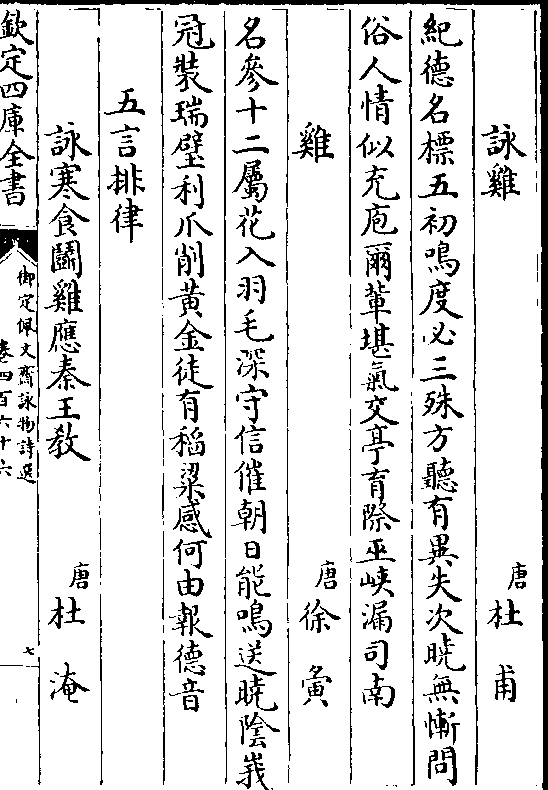 詠雞　唐杜甫
紀德名標五初鳴度必三殊方聽有異失次曉無慚問
俗人情似充庖爾輩堪氣交亭育際巫峽漏司南
雞　唐徐夤
名參十二屬花入羽毛深守信催朝日能鳴送曉陰峩
冠裝瑞璧利爪削黃金徒有稻粱感何由報德音
五言排律
詠寒食鬭雞應秦王教　唐杜淹
欽定四庫全書
御定佩文齋詠物詩選
卷四百六十六
七